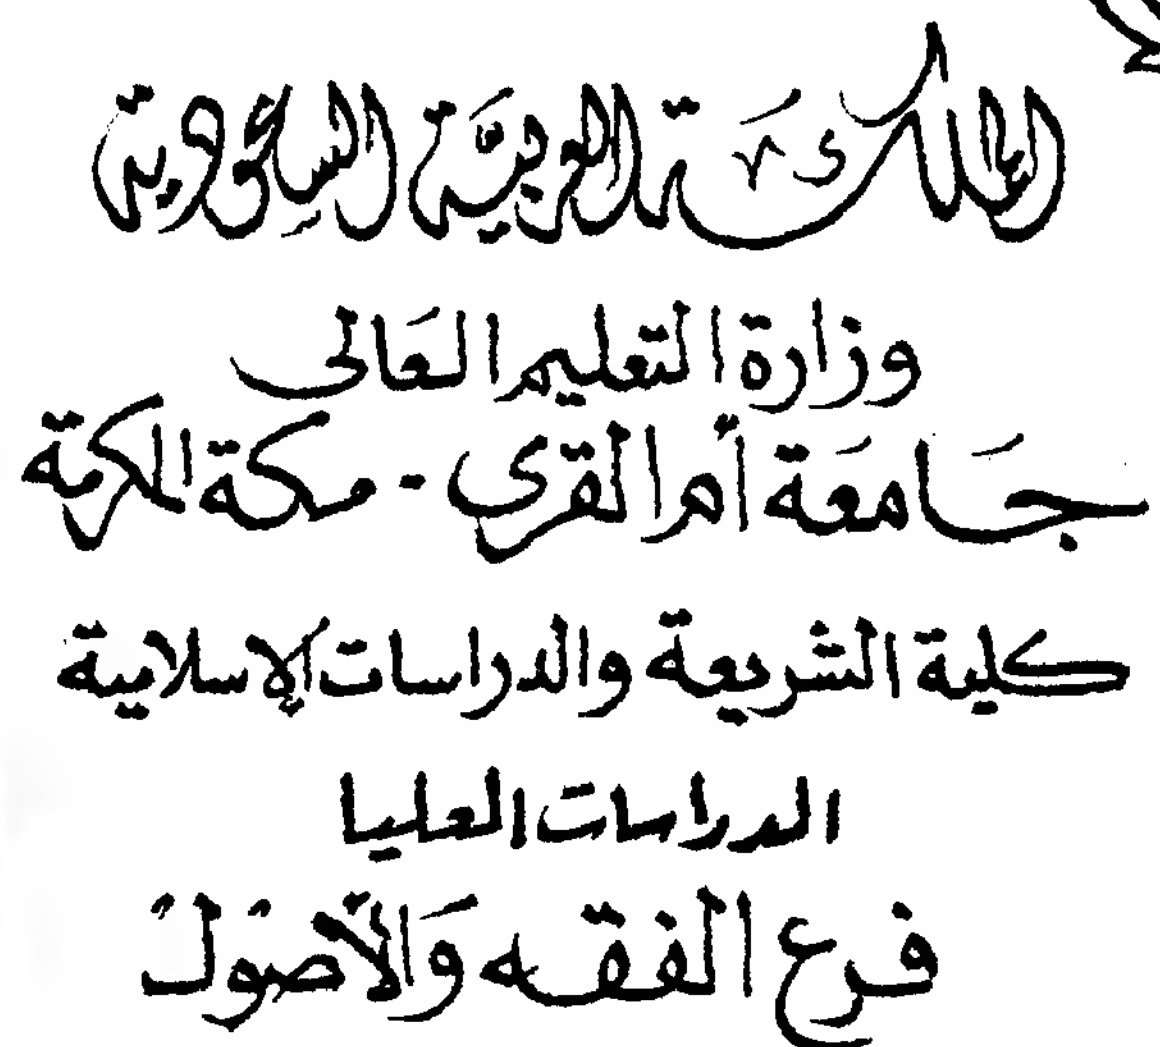 المملكة العربية السعودية
وزارة التعليم العالى
جامعة أم القرى - مكة المكرمة
كلية الشريعة والدراسات الإسلامية
الدراسات العليا
فرع الفقه والأصول